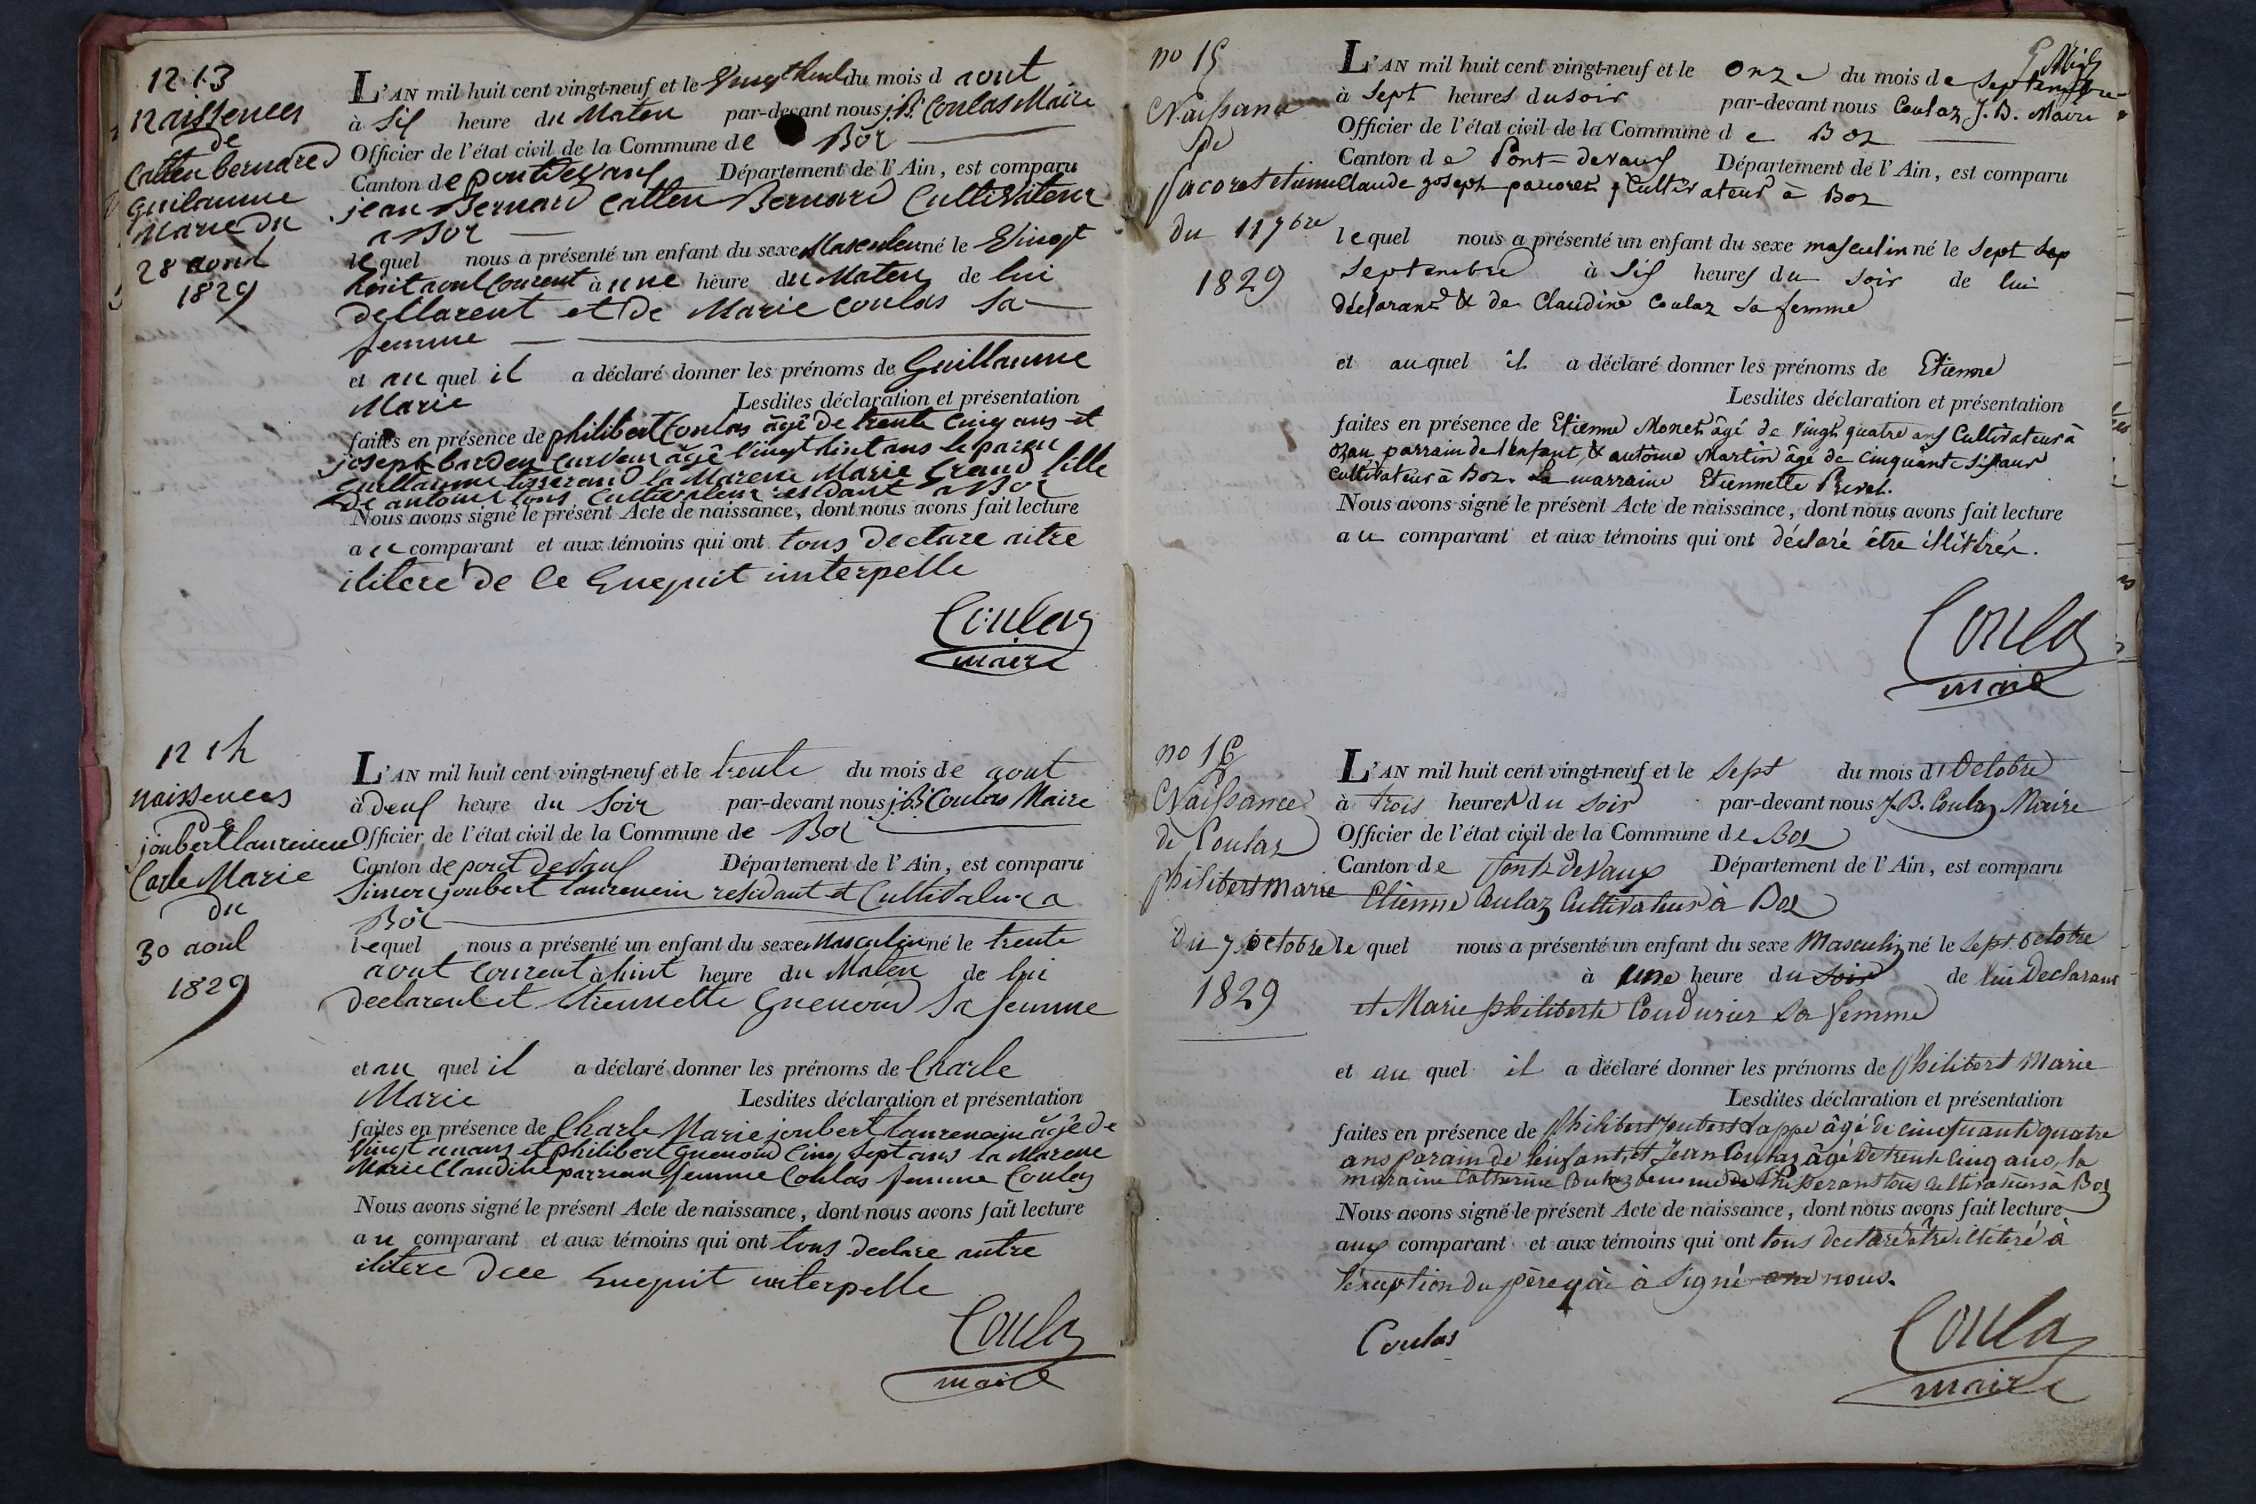 12 13
naissences
de
Catten bernared
guilaume
Marie du
28 aout
1829
L'AN mil huit cent vingt-neuf et le vingt huit du mois d aout
à Sis heure du Maten par-devant nous j.B. Coulas Maire
Officier de l'état civil de la Commune de Bôz
Canton de pontdevaus Département de l'Ain, est comparu
jean Bernard Catten Bernard Cultivateur
a Boz
lequel nous a présenté un enfant du sexe Masculeu né le Vingt
huit aout Courent à une heure du Maten de lui
dellarent et de Marie Coulas sa
femme
et au quel il a déclaré donner les prénoms de Guillaume
Marie Lesdites déclaration et présentation
faites en présence de philibert Coulas âgê de trente cinq ans et
joseph barden âgê Vingt huit ans le paren
guillaume tisserand la Marene Marie fille
de antoine tous Cultivateur a Boz
Nous avons signé le présent Acte de naissance, dont nous avons fait lecture
au comparant et aux témoins qui ont tous declare aitre
ilitere de ce Enequit interpelle
Coulas
maire
12 14
naissences
de
joubert laurencin
Carle Marie
du
30 aout
1829
L'AN mil huit cent vingt-neuf et le trente du mois de aout
à deus heure du Soir par-devant nous j.B. Coulas Maire
Officier de l'état civil de la Commune de Boz
Canton de pont devaus Département de l'Ain, est comparu
Simon joubert laurencin residant et Cultivateur a
Bôz
lequel nous a présenté un enfant du sexe Masculin né le trente
aout Courent à huit heure du Maten de lui
declarent et Etiennette Guenoud Sa femme
et au quel il a déclaré donner les prénoms de Charle
Marie Lesdites déclaration et présentation
faites en présence de Charle Marie joubert laurencin âgê de
Vingt ans et philibert Guenoud Cinq Sept ans la Marene
Marie Claudine femme Coulas femme Coulas
Nous avons signé le présent Acte de naissance, dont nous avons fait lecture
au comparant et aux témoins qui ont tous declare autre
ilitere dece Enequit interpelle
Coulas
maire
no 15
Naissance
De
pacoret etienne
du 11 7bre
1829
L'AN mil huit cent vingt-neuf et le onze du mois de Septembre
à Sept heures du soir par-devant nous Coulaz J. B. Maire
Officier de l'état civil de la Commune de Boz
Canton de Pont=devaux Département de l'Ain, est comparu
Claude joseph pacoret, Cultivateur à Boz
lequel nous a présenté un enfant du sexe masculin né le sept sep
septembre à Six heures du soir de lui
déclarant & de Claudine Coulaz sa femme
et auquel il a déclaré donner les prénoms de Etienne
Lesdites déclaration et présentation
faites en présence de Etienne Monet âgé de vingt quatre ans Cultivateur à
Ozan parrain de l'enfant, & antoine Martin âgé de cinquante six ans
Cultivateur à Boz. la marraine Etiennette Prevet.
Nous avons signé le présent Acte de naissance, dont nous avons fait lecture
au comparant et aux témoins qui ont déclaré être illitérés.
Coulas
maire
no 16
Naissance
de Coulaz
philibert Marie
Du 7 octobre
1829
L'AN mil huit cent vingt-neuf et le Sept du mois d'Octobre
à trois heures du soir par-devant nous J. B. Coulaz Maire
Officier de l'état civil de la Commune de Boz
Canton de Pont de Vaux Département de l'Ain, est comparu
Etienne Coulaz Cultivateur à Boz
le quel nous a présenté un enfant du sexe Masculin né le Sept octobre
à une heure du soir de lui Declarant
et Marie philiberte Coudurier Sa femme
et au quel il a déclaré donner les prénoms de Philibert Marie
Lesdites déclaration et présentation
faites en présence de Philibert Joubert âgé de cinquante quatre
ans parain de l'enfant et Jean Coulaz âgé de trente cinq ans, la
maraine Catherine Coulaz tous cultivateurs à Boz
Nous avons signé le présent Acte de naissance, dont nous avons fait lecture
aux comparant et aux témoins qui ont tous declaré être illitéré à
l'exeption du père qui à signé nous.
Coulas
Coulas
maire